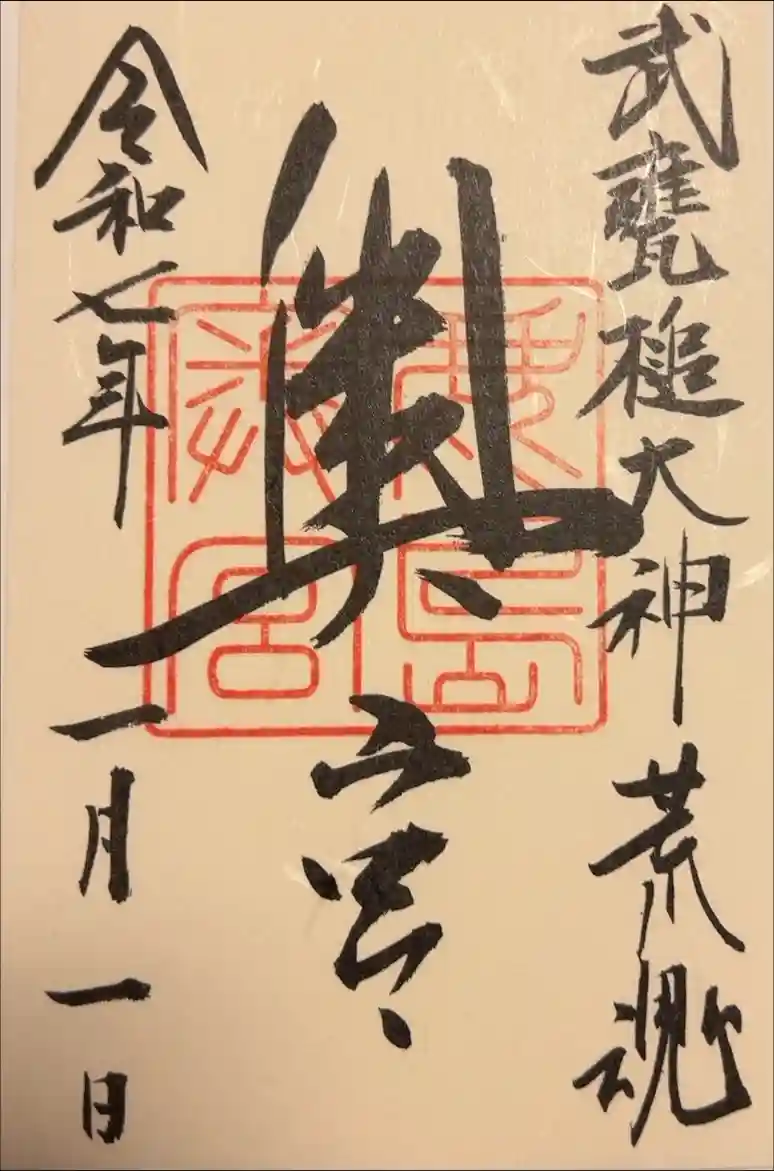 武甕槌大神荒魂
奥宮
令和七年一月一日
鹿島
奥宮